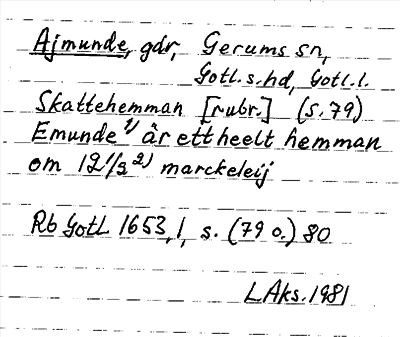 Ajmunde, gdr, Gerums sn,
Gotl. s. hd, Gotl. l.
Skattehemman [rubr.] (s. 79)
Emunde 1) är ett heelt hemman
om 12 1/2 2) marckeleij
Rb Gotl 1653, 1, s. (79 o.) 80
LAks. 1981